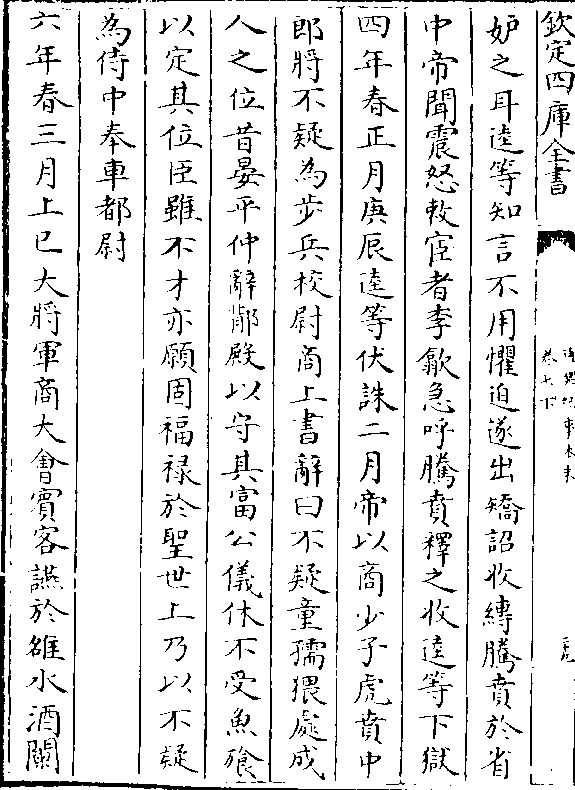 欽定四庫全書
通鑑紀事本末
卷七下
妒之耳逵等知言不用懼迫遂出矯詔收縳騰賁於省
中帝聞震怒敕宦者李歙急呼騰賁釋之收逵等下獄
四年春正月庚辰逵等伏誅二月帝以商少子虎賁中
郎將不疑為步兵校尉商上書辭曰不疑童孺猥處成
人之位昔晏平仲辭鄁殿以守其富公儀休不受魚飱
以定其位臣雖不才亦願固福禄於聖世上乃以不疑
為侍中奉車都尉
六年春三月上巳大將軍商大會賓客讌於雒水酒闌